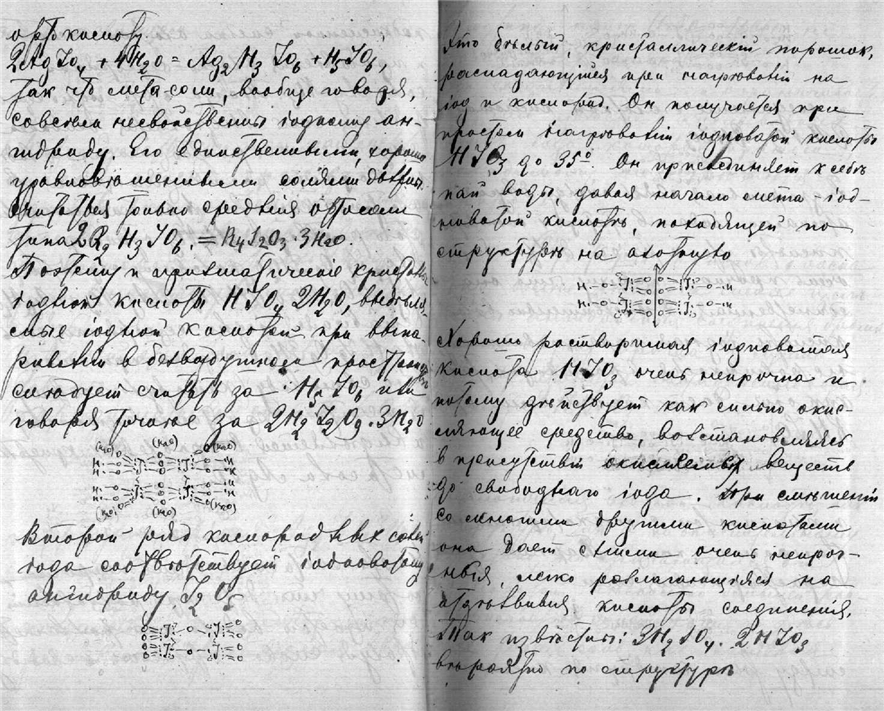 орто кислоту.
2AgJO₄ + 4H₂O = Ag₂H₃JO₆ + H₅JO₆,
такъ что мета-соли, вообще говоря,
совсемъ несвойственны іодному ан-
гидриду. Его единственными, хорошо
уравновѣшенными солями должны
считаться только среднія ортосоли
типа 2R₂H₃JO₆ = R₄J₂O₉·3H₂O.
Поэтому и призматическіе кристаллы
іодной кислоты HJO₄ 2H₂O, выдѣляе-
мые іодной кислотой при выпа-
риваніи в безвоздушномъ пространствѣ
слѣдуетъ считать за H₅JO₆ или
говоря точнѣе за 2H₂J₂O₉·3H₂O
(H₂O) O (H₂O) O (H₂O)
H J J H
H J J H
(H₂O) (H₂O) (H₂O)
Второй рядъ кислородныхъ соед.
іода соотвѣтствуетъ іодноватому
ангидриду J₂O₅
J J
J J
Это бѣлый, кристаллическій порошок,
распадающійся при нагрѣваніи на
іод и кислород. Он получается при
простом нагрѣваніи іодноватой кислоты
HJO₃ до 35°. Он присоединяет к себѣ
пай воды, давая начало мета-іод-
новатой кислотѣ, походящей по
структурѣ на азотную
H–O– J J –O–H
H–O– J J –O–H
Хорошо растворимая іодноватая
кислота HJO₃ очень непрочна и
потому дѣйствует как сильно окис-
ляющее средство, возстановляясь
в присутствіи окисляемых веществ
до свободнаго іода. При смѣшеніи
со многими другими кислотами
она даетъ с ними очень непроч-
ныя, легко разлагающіяся на
отдѣльныя кислоты соединенія.
Так извѣстны: 3H₂SO₄. 2HJO₃
вѣроятно по структурѣ